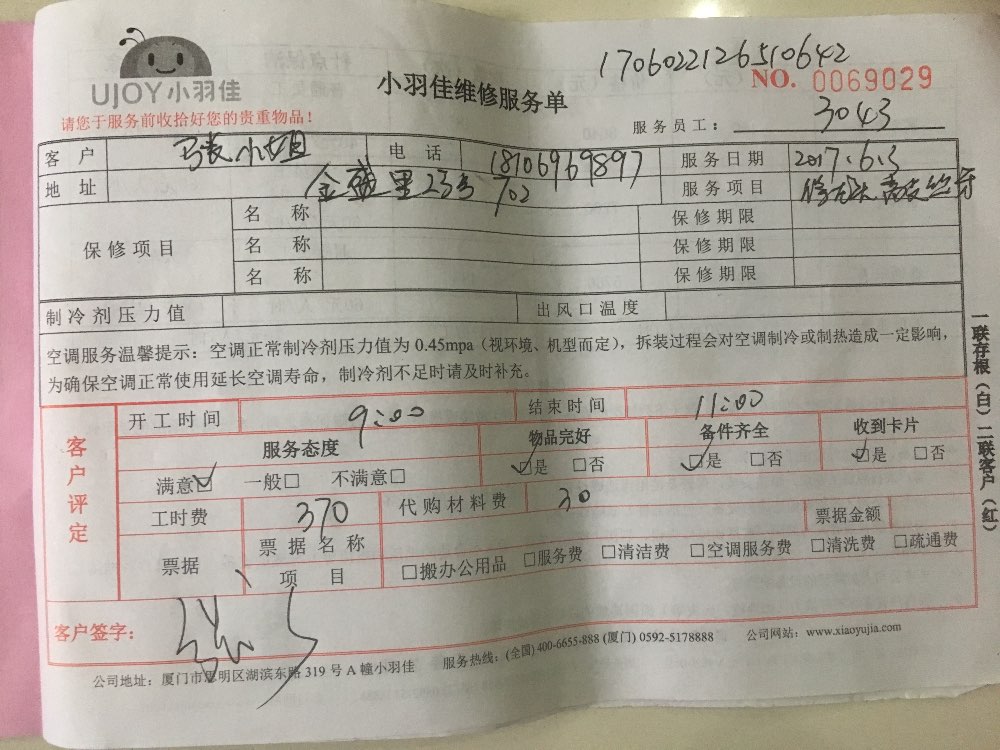 1706022126510642
UJOY小羽佳
小羽佳维修服务单
NO. 0069029
请您于服务前收拾好您的贵重物品！
服务员工： 3043
客户 小姐 电话 18106969897 服务日期 2017.6.3
地址 金 里23号702 服务项目
保修项目 名称 保修期限
名称 保修期限
名称 保修期限
制冷剂压力值 出风口温度
空调服务温馨提示：空调正常制冷剂压力值为 0.45mpa（视环境、机型而定），拆装过程会对空调制冷或制热造成一定影响，
为确保空调正常使用延长空调寿命，制冷剂不足时请及时补充。
客户评定
开工时间 9:00 结束时间 11:00
服务态度 物品完好 备件齐全 收到卡片
满意☑ 一般□ 不满意□ ☑是 □否 ☑是 □否 ☑是 □否
工时费 370 代购材料费 30 票据金额
票据 票据名称
项目 □搬办公用品 □服务费 □清洁费 □空调服务费 □清洗费 □疏通费
客户签字：
公司地址：厦门市思明区湖滨东路 319 号 A 幢小羽佳 服务热线：(全国) 400-6655-888 (厦门) 0592-5178888 公司网站：www.xiaoyujia.com
一联存根（白）二联客户（红）